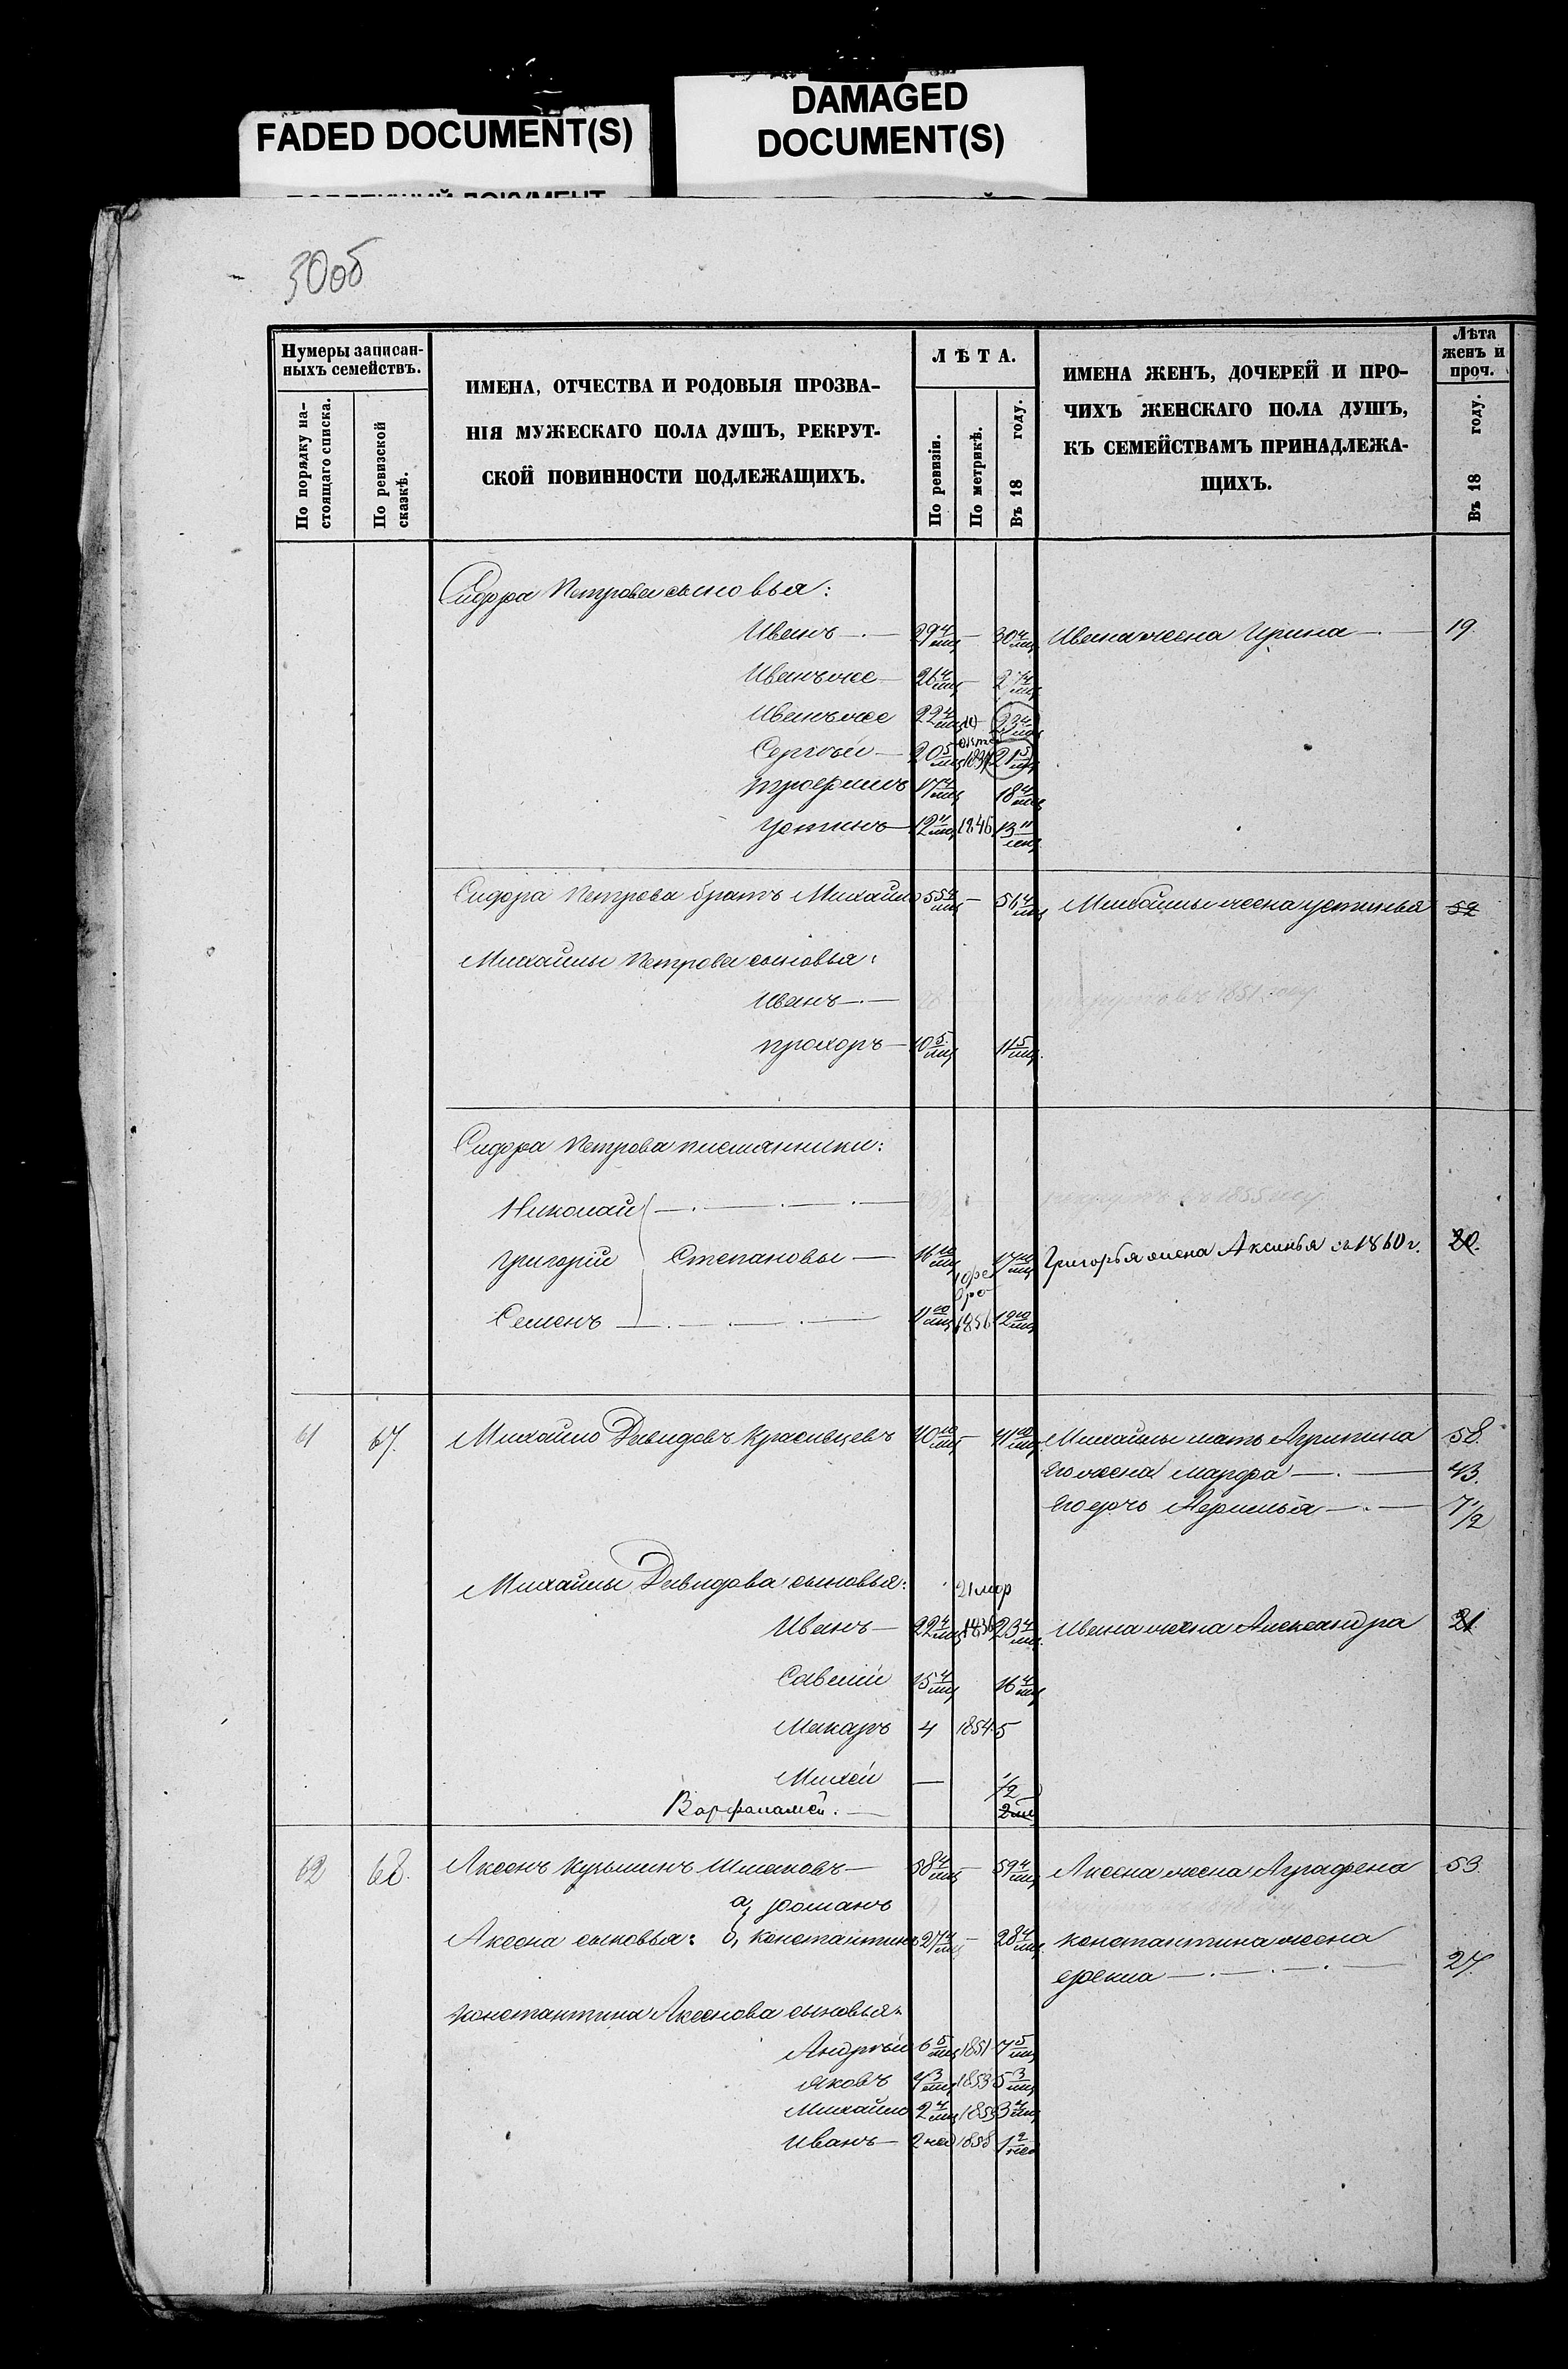 FADED DOCUMENT(S)
DAMAGED
DOCUMENT(S)
30об
Нумеры записан-
ныхъ семействъ.
По порядку на-
стоящаго списка.
По ревизской
сказкѣ.
ИМЕНА, ОТЧЕСТВА И РОДОВЫЯ ПРОЗВА-
НІЯ МУЖЕСКАГО ПОЛА ДУШЪ, РЕКРУТ-
СКОЙ ПОВИННОСТИ ПОДЛЕЖАЩИХЪ.
ЛѢТА.
По ревизіи.
По метрикѣ.
Въ 18 году.
ИМЕНА ЖЕНЪ, ДОЧЕРЕЙ И ПРО-
ЧИХЪ ЖЕНСКАГО ПОЛА ДУШЪ,
КЪ СЕМЕЙСТВАМЪ ПРИНАДЛЕЖА-
ЩИХЪ.
Лѣта
женъ и
проч.
Въ 18 году.
Сидора Петрова сыновья:
Иванъ — 29 4/мц — 30 4/мц Ивана жена Ирина — 19.
Иванъ же — 26 4/мц — 27 4/мц
Иванъ же 22 4/мц 23 4/мц
Сергѣй — 20 5/мц 21 5/мц
Трофимъ 17 4/мц 18 4/мц
Устинъ 12 11/мц 1846 13 11/мц
Сидора Петрова братъ Михайло 55 4/мц — 56 4/мц Михайлы жена Устинья 52
Михайлы Петрова сыновья:
Иванъ — въ 1851 году
Прохоръ — 10 5/мц 11 5/мц
Сидора Петрова племянники:
Николай — въ 1855 году
Григорій Степановы — 16 10/мц 17 10/мц Григорья жена Аксинья съ 1860 г. 20.
Семенъ — 11 10/мц 12 10/мц
61 67. Михайло Давидовъ Красивцевъ 40 10/мц — 41 10/мц Михайлы мать Агрипина 58.
его жена Марфа — 43.
его дочь — 7 1/2
Михайлы Давидова сыновья: 21 мар
Иванъ — 22 4/мц 1836 23 4/мц Ивана жена Александра 21
Савелій 15 4/мц 16 4/мц
Макаръ 4 1854 5
Михей — 1/2
Варфаламей. —
62 68. Аксенъ Кузьминъ Шмаковъ — 58 4/мц — 59 4/мц Аксена жена Аграфена 53.
а, Романъ
Аксена сыновья: б, Константинъ 27 4/мц — 28 4/мц Константина жена
Фекла — 27.
Константина Аксенова сыновья:
Андрѣй 6 5/мц 1851 7 5/мц
Яковъ 4 3/мц 1853 5 3/мц
Михайло 2 4/мц 1855 3 4/мц
Иванъ — 2 нед 1858 1 2/нед